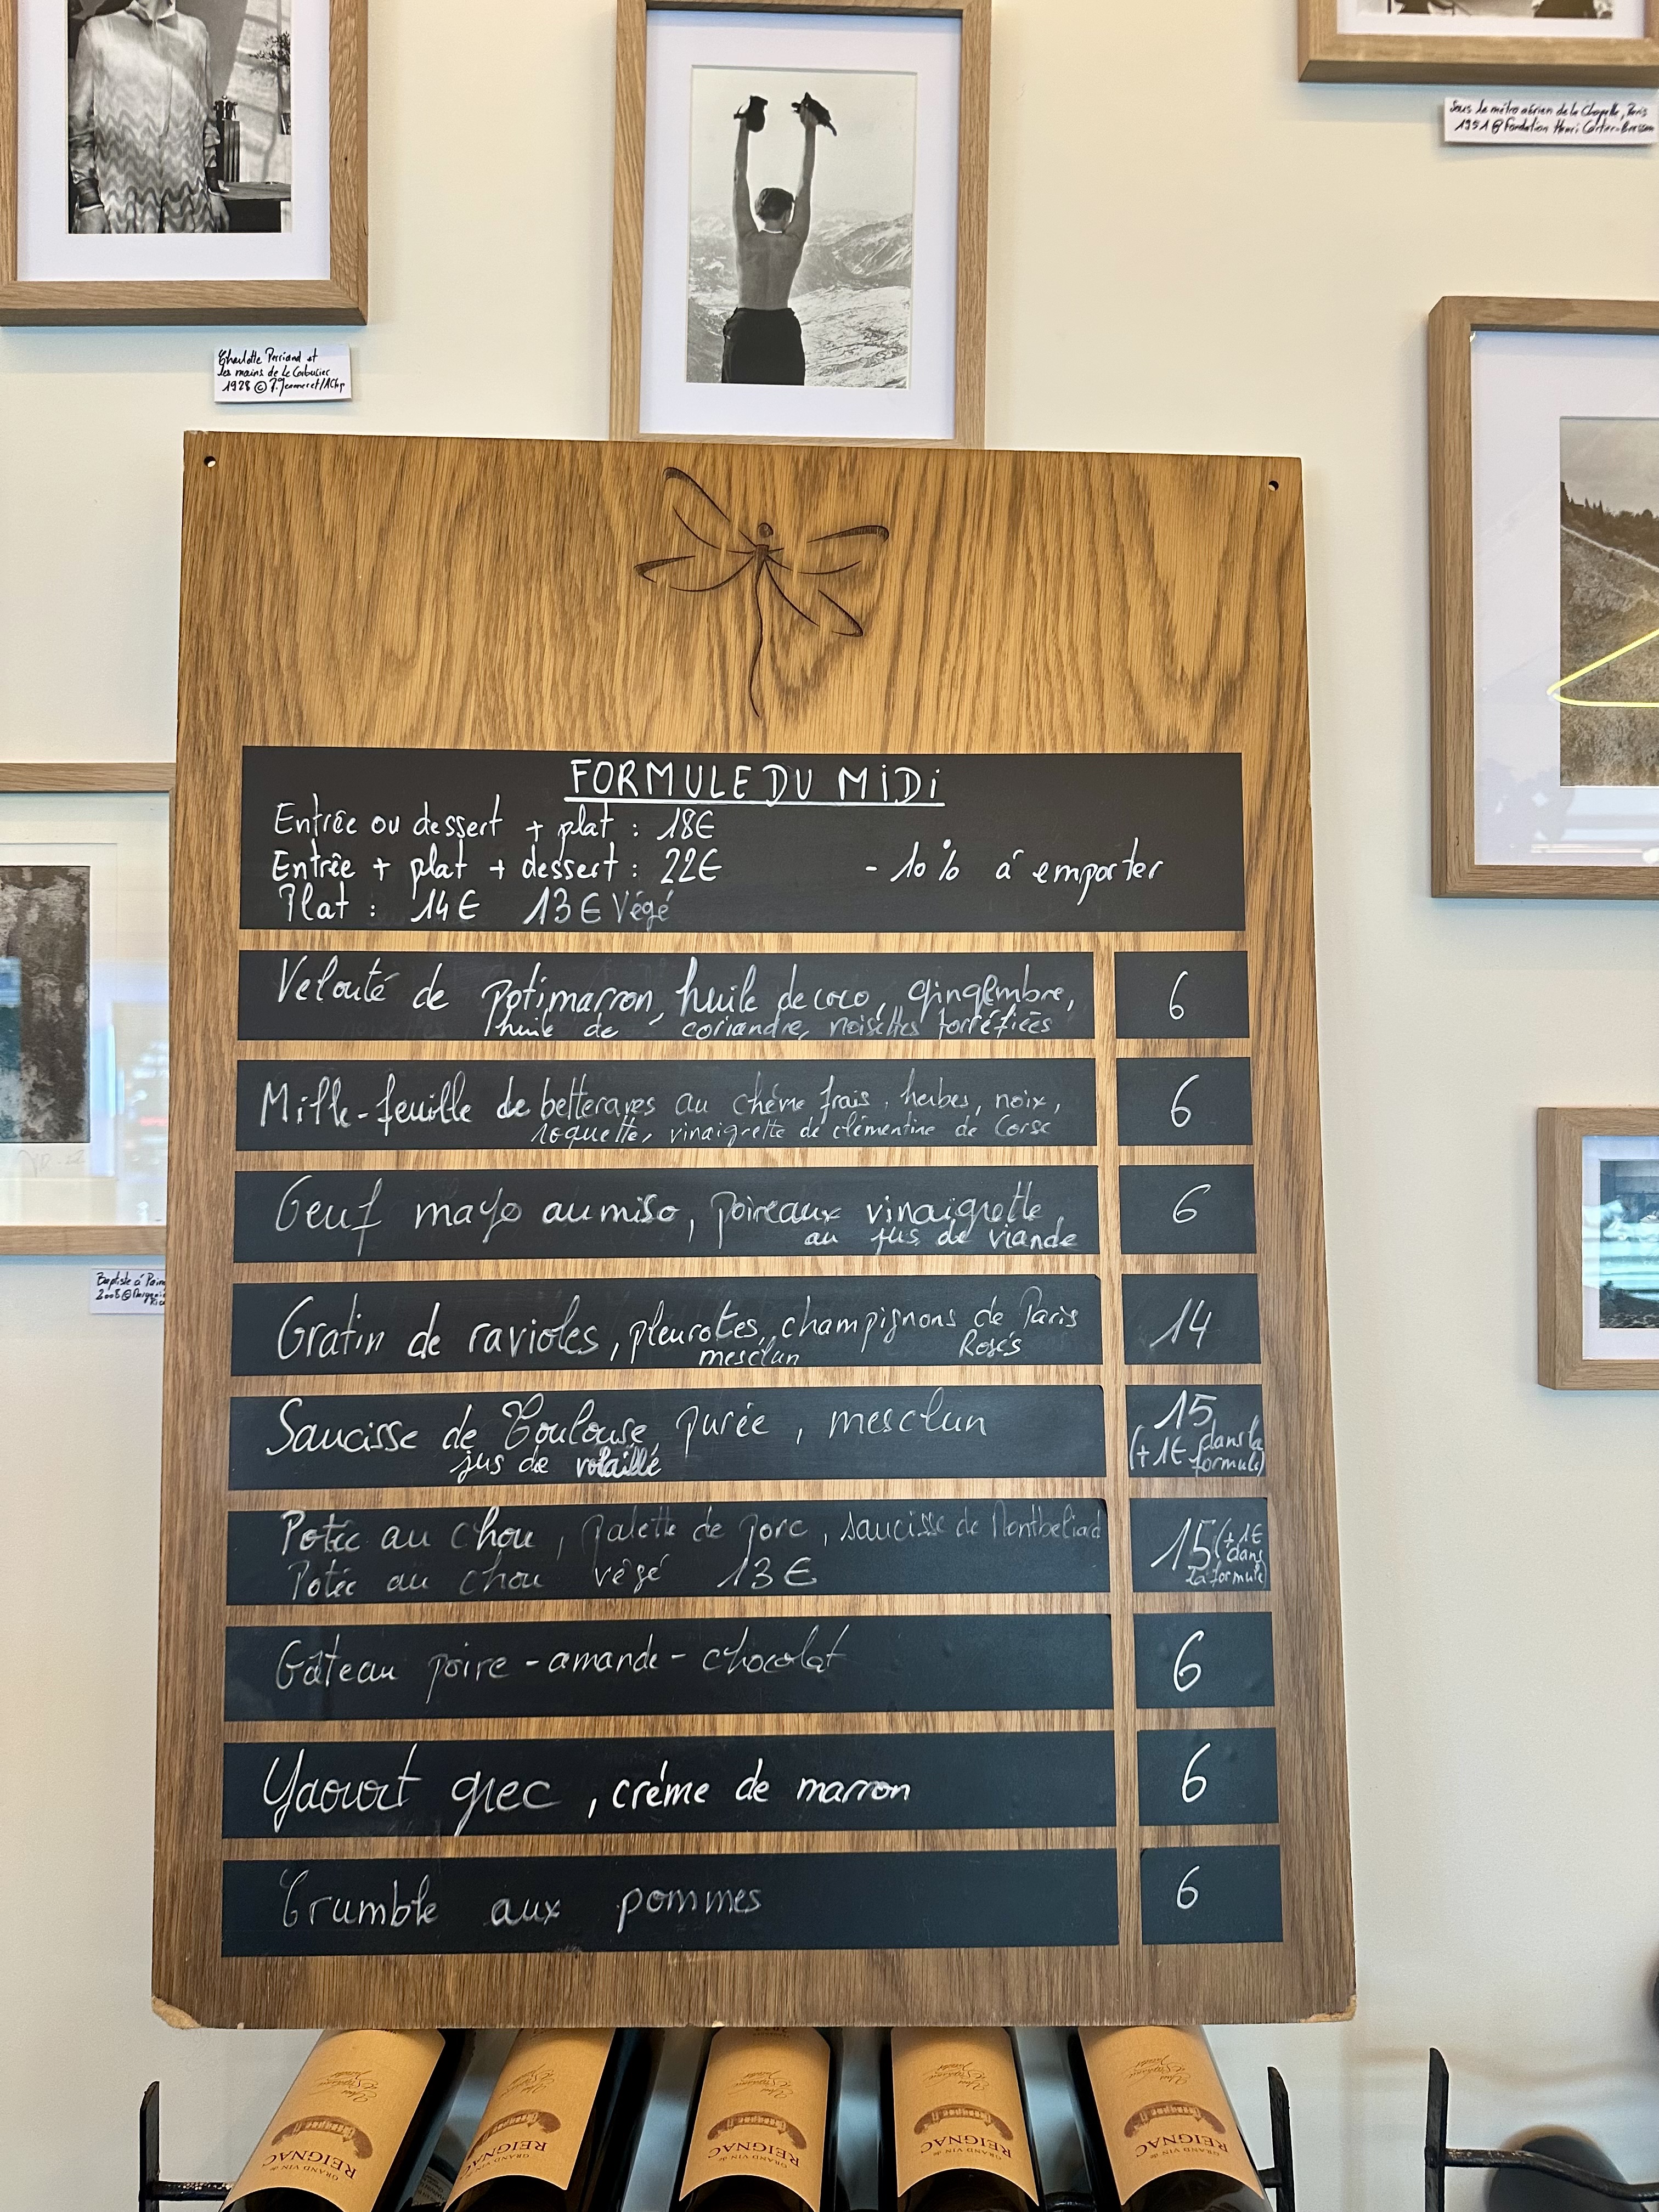 Sous le métro aérien de la Chapelle, Paris
1951 @ Fondation Henri Cartier-Bresson
Charlotte Perriand et
les mains de Le Corbusier
1928 © P. Jeanneret/AChp
FORMULE DU MiDi
Entrée ou dessert + plat : 18€
Entrée + plat + dessert : 22€
- 10% à emporter
Plat : 14€ 13€ Végé
Velouté de potimarron, huile de coco, gingembre,
huile de coriandre, noisettes torréfiées
6
Mille-feuille de betteraves au chèvre frais, herbes, noix,
roquette, vinaigrette de clémentine de Corse
6
Oeuf mayo au miso, poireaux vinaigrette,
au jus de viande
6
Gratin de ravioles, pleurotes, champignons de Paris
mesclun Rosés
14
Saucisse de Toulouse, purée, mesclun
jus de volaille
15
(+1€ dans la
formule)
Potée au chou, palette de porc, saucisse de Montbeliard
Potée au chou végé 13€
15 (+1€
dans
la formule)
Gâteau poire - amande - chocolat
6
Yaourt grec, crème de marron
6
Crumble aux pommes
6
Baptiste à
2008 ©
GRAND VIN de
REIGNAC
GRAND VIN de
REIGNAC
GRAND VIN de
REIGNAC
GRAND VIN de
REIGNAC
GRAND VIN de
REIGNAC